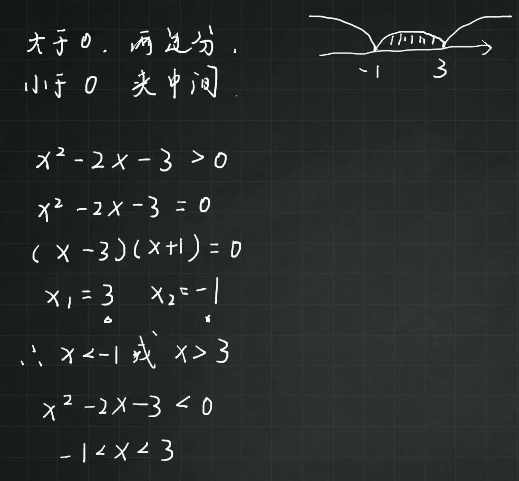 大于0. 两边分.
小于0 夹中间.
-1 3
x² - 2x - 3 > 0
x² - 2x - 3 = 0
(x - 3)(x+1) = 0
x₁ = 3 x₂ = -1
∴ x < -1 或 x > 3
x² - 2x - 3 < 0
-1 < x < 3